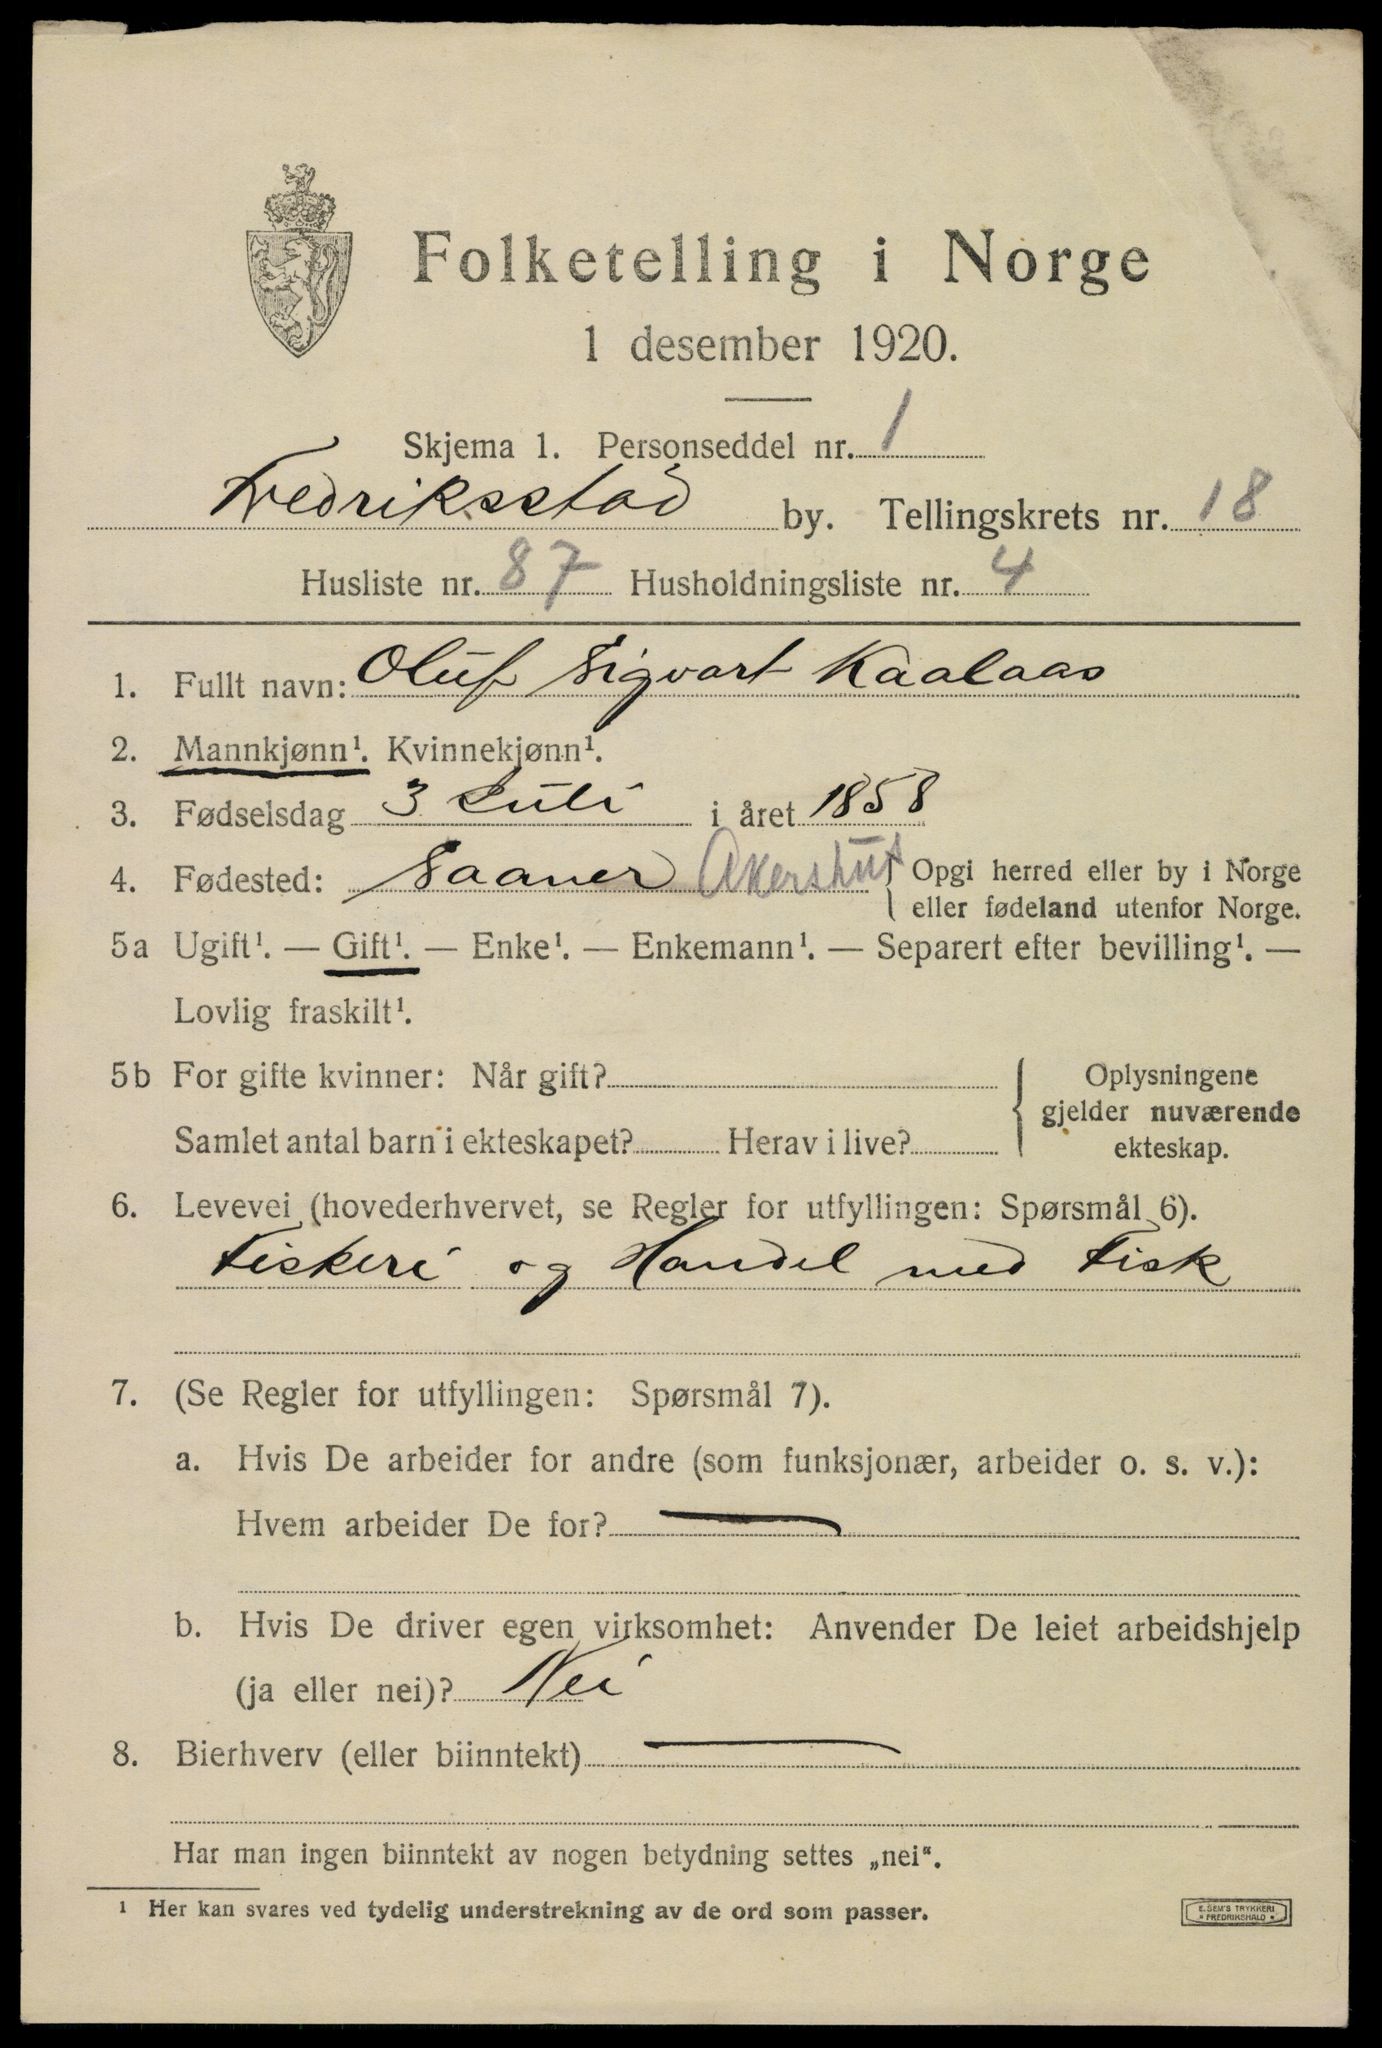 Folketelling i Norge
1 desember 1920.
Skjema 1. Personseddel nr. 1
Fredriksstad by. Tellingskrets nr. 18
Husliste nr. 87 Husholdningsliste nr. 4
1. Fullt navn: Oluf Sigvart Kaalaas
2. Mannkjønn¹. Kvinnekjønn¹.
3. Fødselsdag 3 Juli i året 1858
4. Fødested: Saaner Akershus { Opgi herred eller by i Norge
eller fødeland utenfor Norge.
5a Ugift¹. — Gift¹. — Enke¹. — Enkemann¹. — Separert efter bevilling¹. —
Lovlig fraskilt¹.
5b For gifte kvinner: Når gift? { Oplysningene
gjelder nuværende
Samlet antal barn i ekteskapet? Herav i live? ekteskap.
6. Levevei (hovederhvervet, se Regler for utfyllingen: Spørsmål 6).
Fiskeri og Handel med Fisk
7. (Se Regler for utfyllingen: Spørsmål 7).
a. Hvis De arbeider for andre (som funksjonær, arbeider o. s. v.):
Hvem arbeider De for? —
b. Hvis De driver egen virksomhet: Anvender De leiet arbeidshjelp
(ja eller nei)? Nei
8. Bierhverv (eller biinntekt) —
Har man ingen biinntekt av nogen betydning settes „nei“.
¹ Her kan svares ved tydelig understrekning av de ord som passer.
E. SEM'S TRYKKERI
• FREDRIKSHALD •